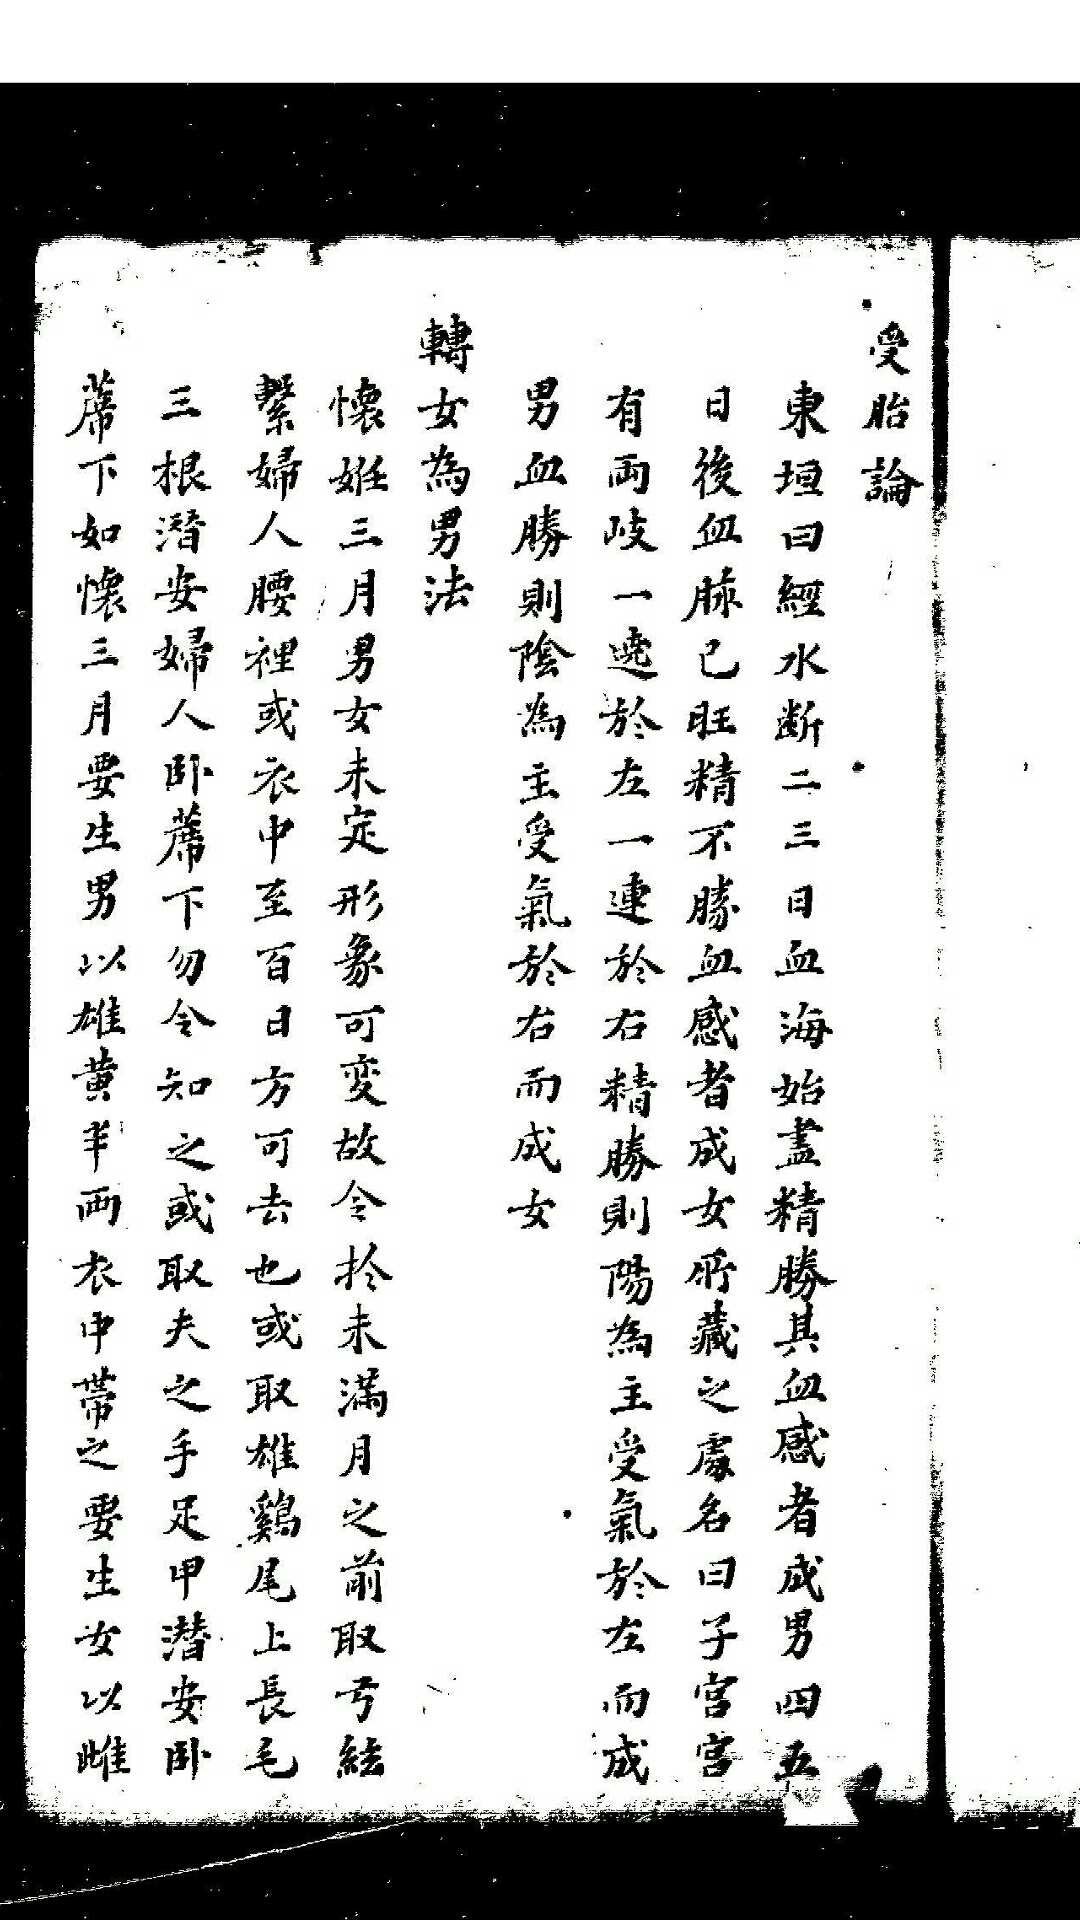 受胎論
東垣曰經水断二三日血海始盡精勝其血感者成男四五
日後血脉已旺精不勝血感者成女所藏之處名曰子宮宮
有両岐一遶於左一連於右精勝則陽為主受氣於左而成
男血勝則陰為主受氣於右而成女
轉女為男法
懐姙三月男女未定形象可変故令扵未滿月之前取弓絃
繫婦人腰裡或衣中至百日方可去也或取雄鷄尾上長毛
三根潛安婦人卧蓆下勿令知之或取夫之手足甲潜安卧
蓆下如懐三月要生男以雄黄半両衣中帶之要生女以雌